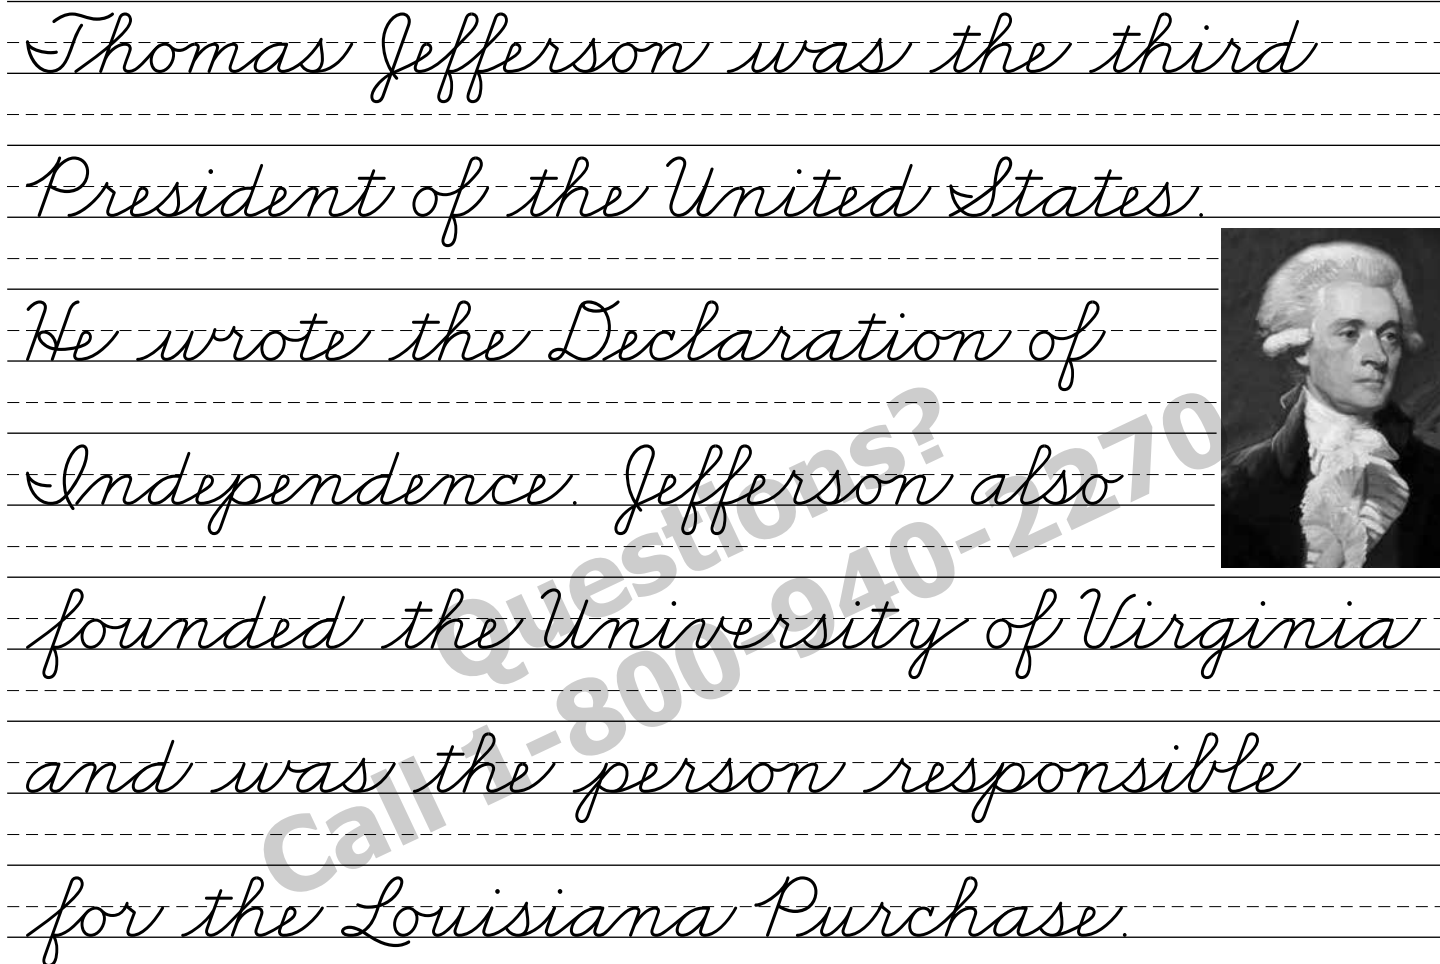 Thomas Jefferson was the third
President of the United States.
He wrote the Declaration of
Independence. Jefferson also
founded the University of Virginia
and was the person responsible
for the Louisiana Purchase.
Questions?
Call 1-800-940-2270